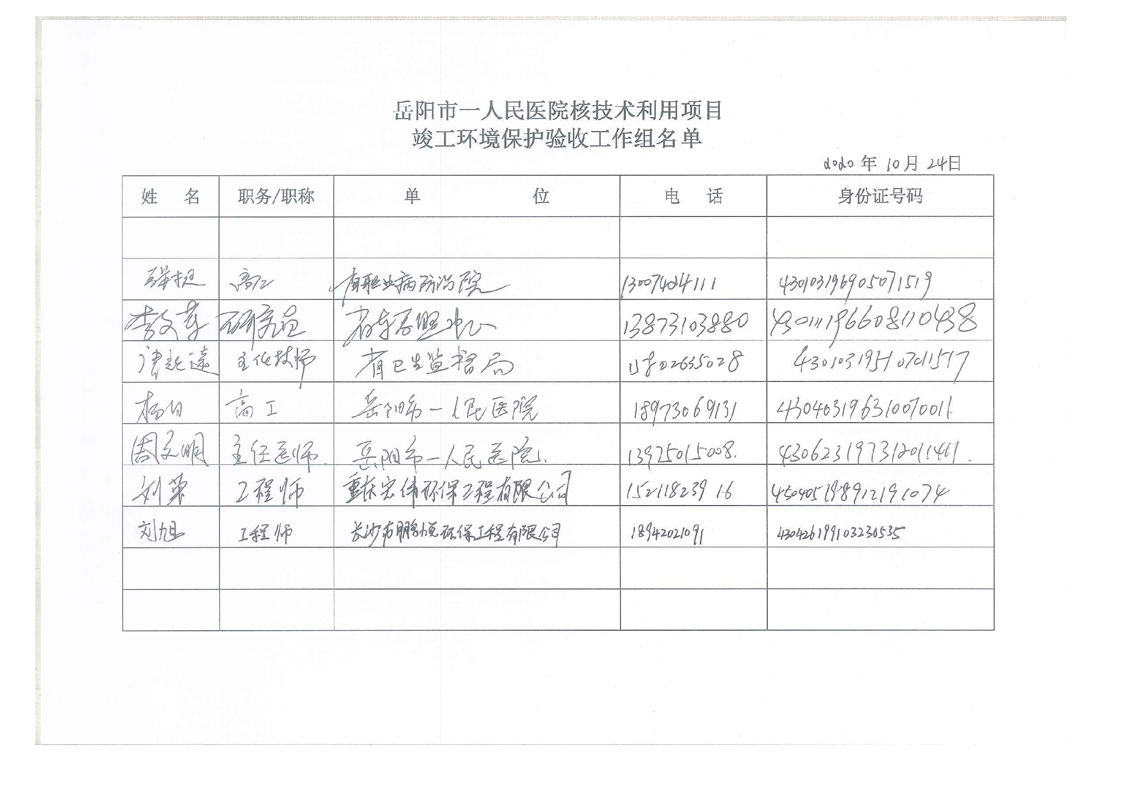 岳阳市一人民医院核技术利用项目
竣工环境保护验收工作组名单
2020 年 10 月 24日
姓 名 职务/职称 单 位 电 话 身份证号码
高工 省职业病防治院 13007424111 430103196905071519
李文革 研究员 13873103880 430111196608110438
谭起远 主任技师 省卫生监督局
杨 高工 岳阳市一人民医院 18973069131 430403196310070011
周文明 主任医师 岳阳市一人民医院 13975015008 430623197312011461
刘 工程师 重庆宏伟环保工程有限公司 15211823916 430405198912191074
刘旭 工程师 环保工程有限公司 18942021091 430426199103230535